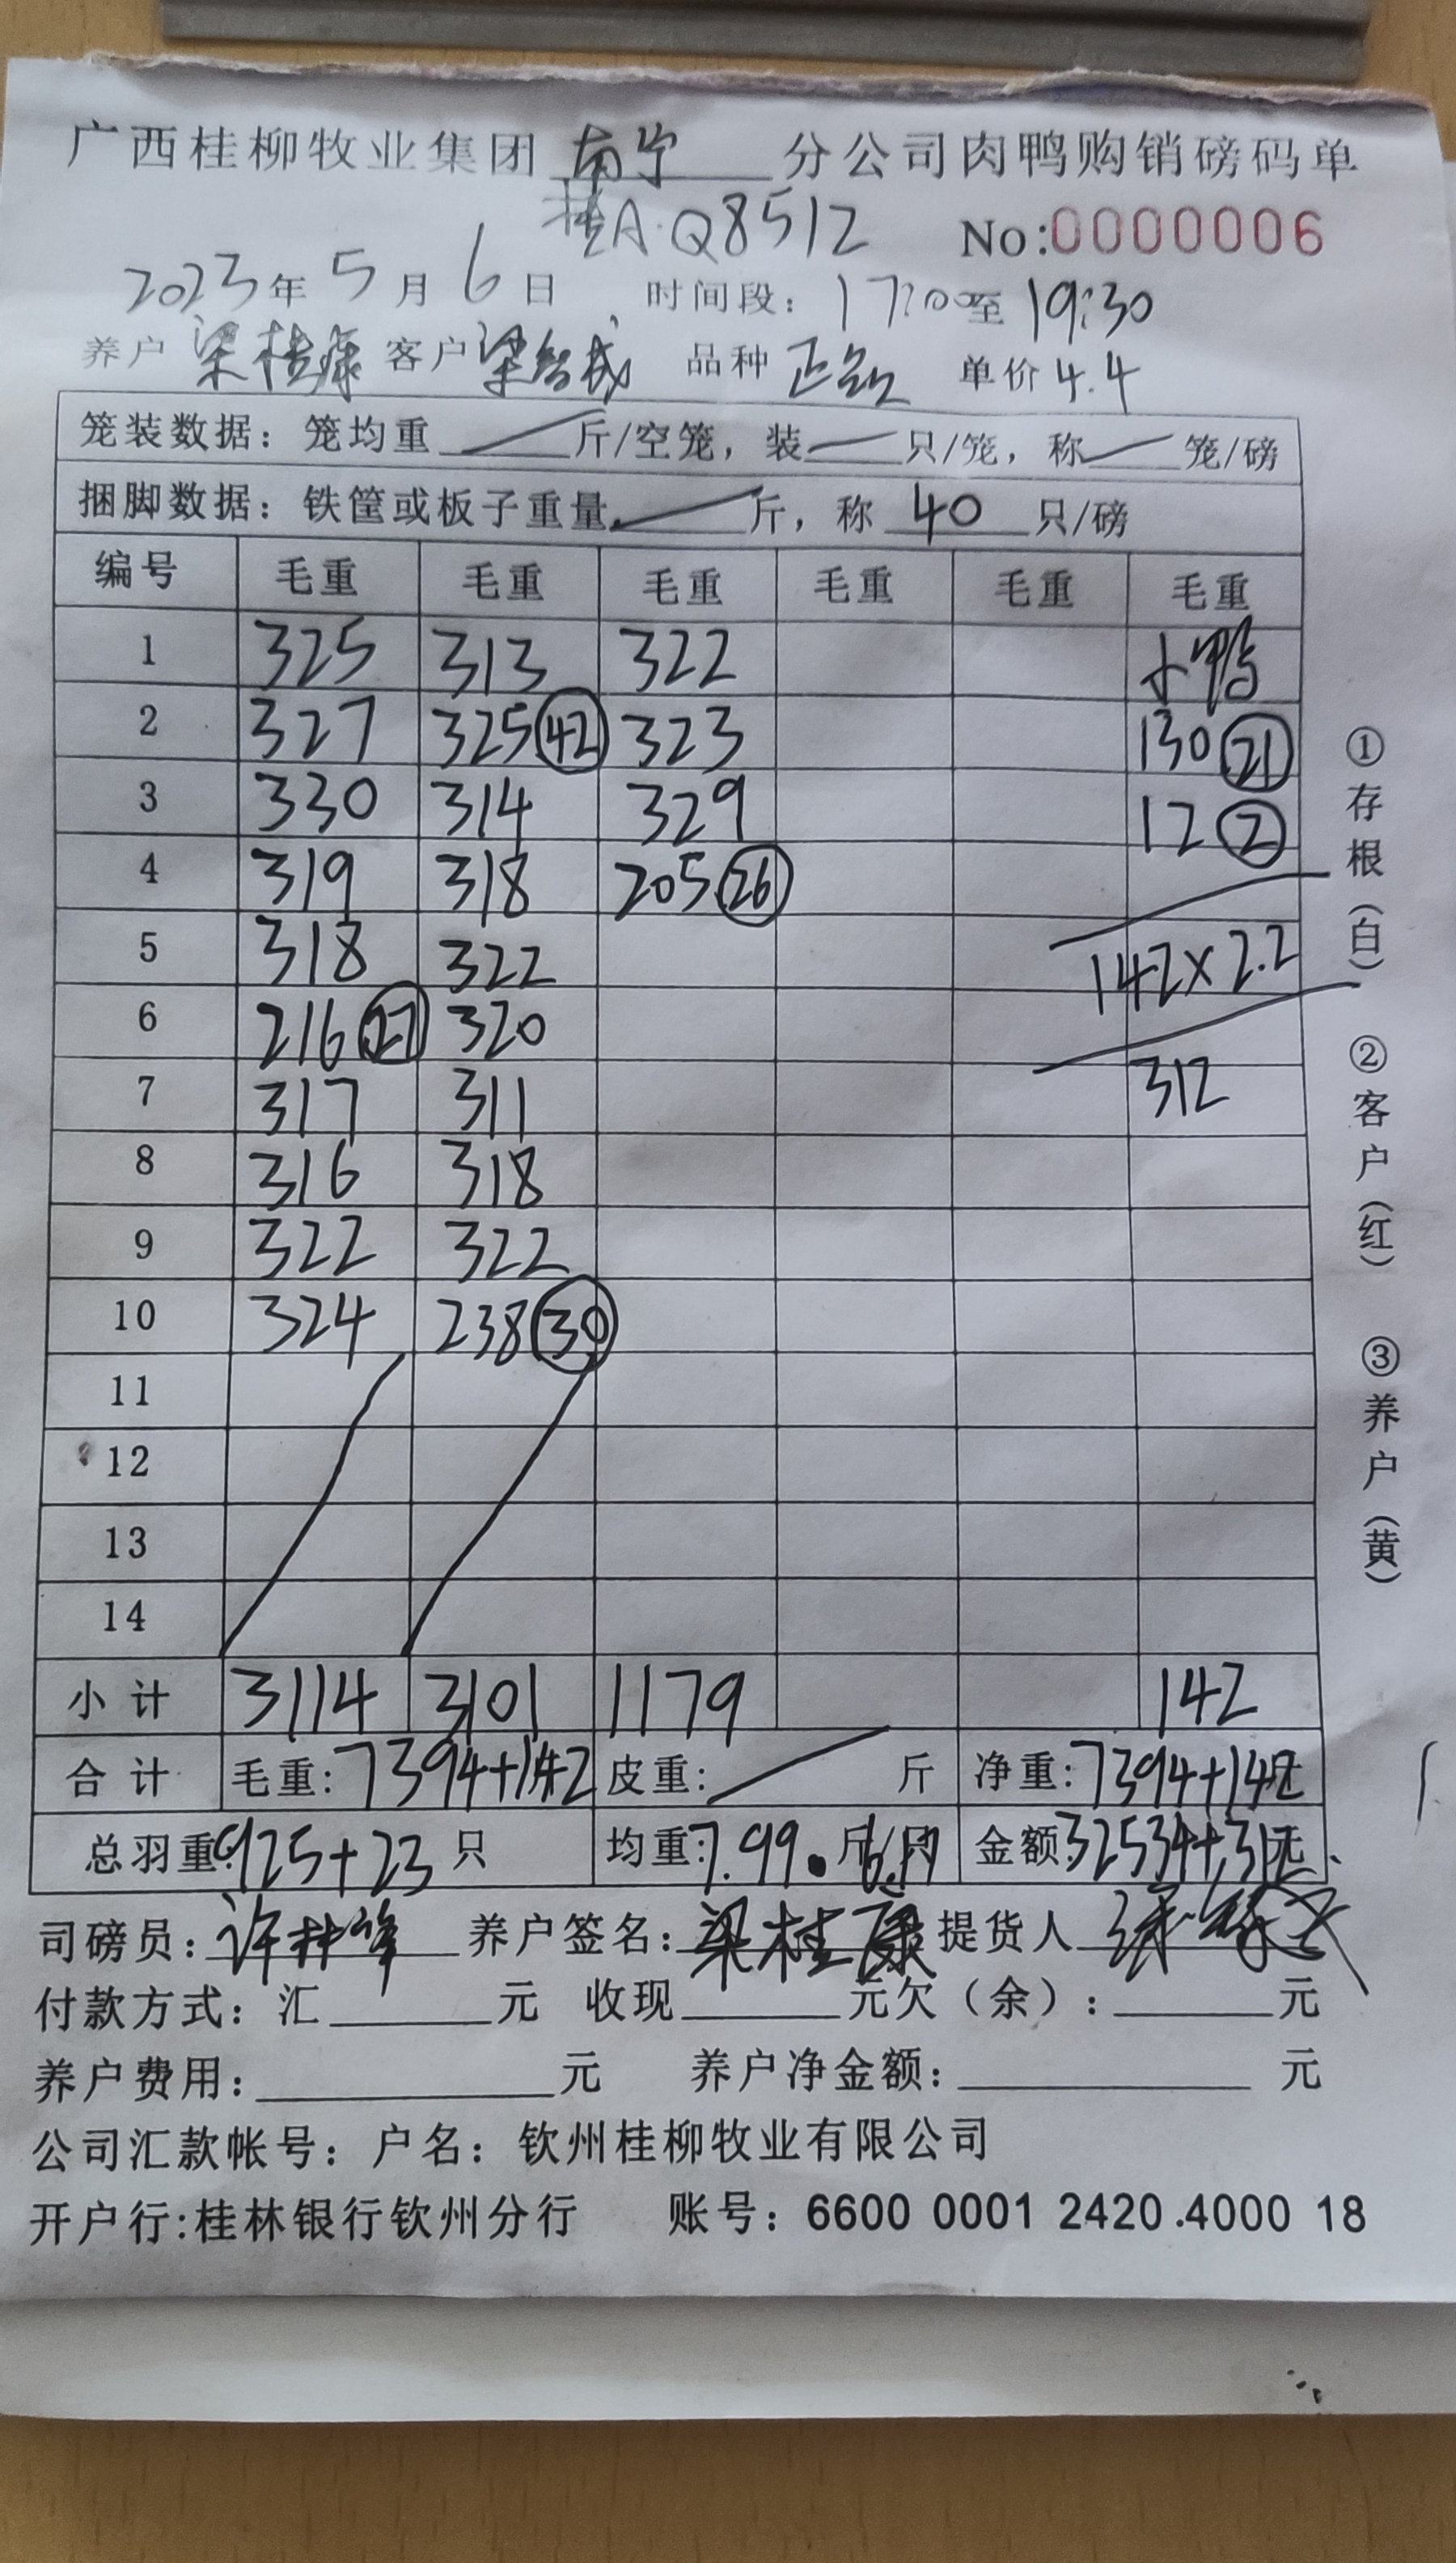 广西桂柳牧业集团 南宁 分公司肉鸭购销磅码单
桂A·Q8512 No:0000006
2023年 5 月 6 日 时间段: 17:00至 19:30
养户 梁桂康 客户 品种 正 单价 4.4
笼装数据:笼均重 斤/空笼,装 只/笼,称 笼/磅
捆脚数据:铁筐或板子重量 斤,称 40 只/磅
编号 毛重 毛重 毛重 毛重 毛重 毛重
1 325 313 322 小鸭
2 327 325 42 323 130 21
3 330 314 329 12 2
4 319 318 205 26
5 318 322 142×2.2
6 216 27 320
7 317 311 312
8 316 318
9 322 322
10 324 238 30
11
12
13
14
小计 3114 3101 1179 142
合计 毛重:7394+142 皮重: 斤 净重:7394+142
总羽重:925+23 只 均重:7.99 斤/只 金额:32534+312元
司磅员: 养户签名:梁桂康 提货人
付款方式:汇 元 收现 元欠(余): 元
养户费用: 元 养户净金额: 元
公司汇款帐号:户名:钦州桂柳牧业有限公司
开户行:桂林银行钦州分行 账号:6600 0001 2420.4000 18
①存根(白) ②客户(红) ③养户(黄)